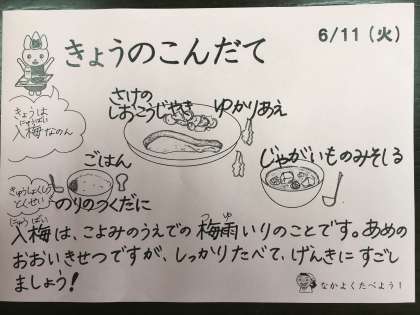 きょうのこんだて
6/11（火）
きょうは
にゅうばい
入梅なのん
さけの
しおこうじやき
ゆかりあえ
ごはん
じゃがいものみそしる
きゅうしょくしつ
とくせい
のりのつくだに
にゅうばい
つゆ
入梅は、こよみのうえでの梅雨いりのことです。あめの
おおいきせつですが、しっかりたべて、げんきにすごし
ましょう！
なかよくたべよう！